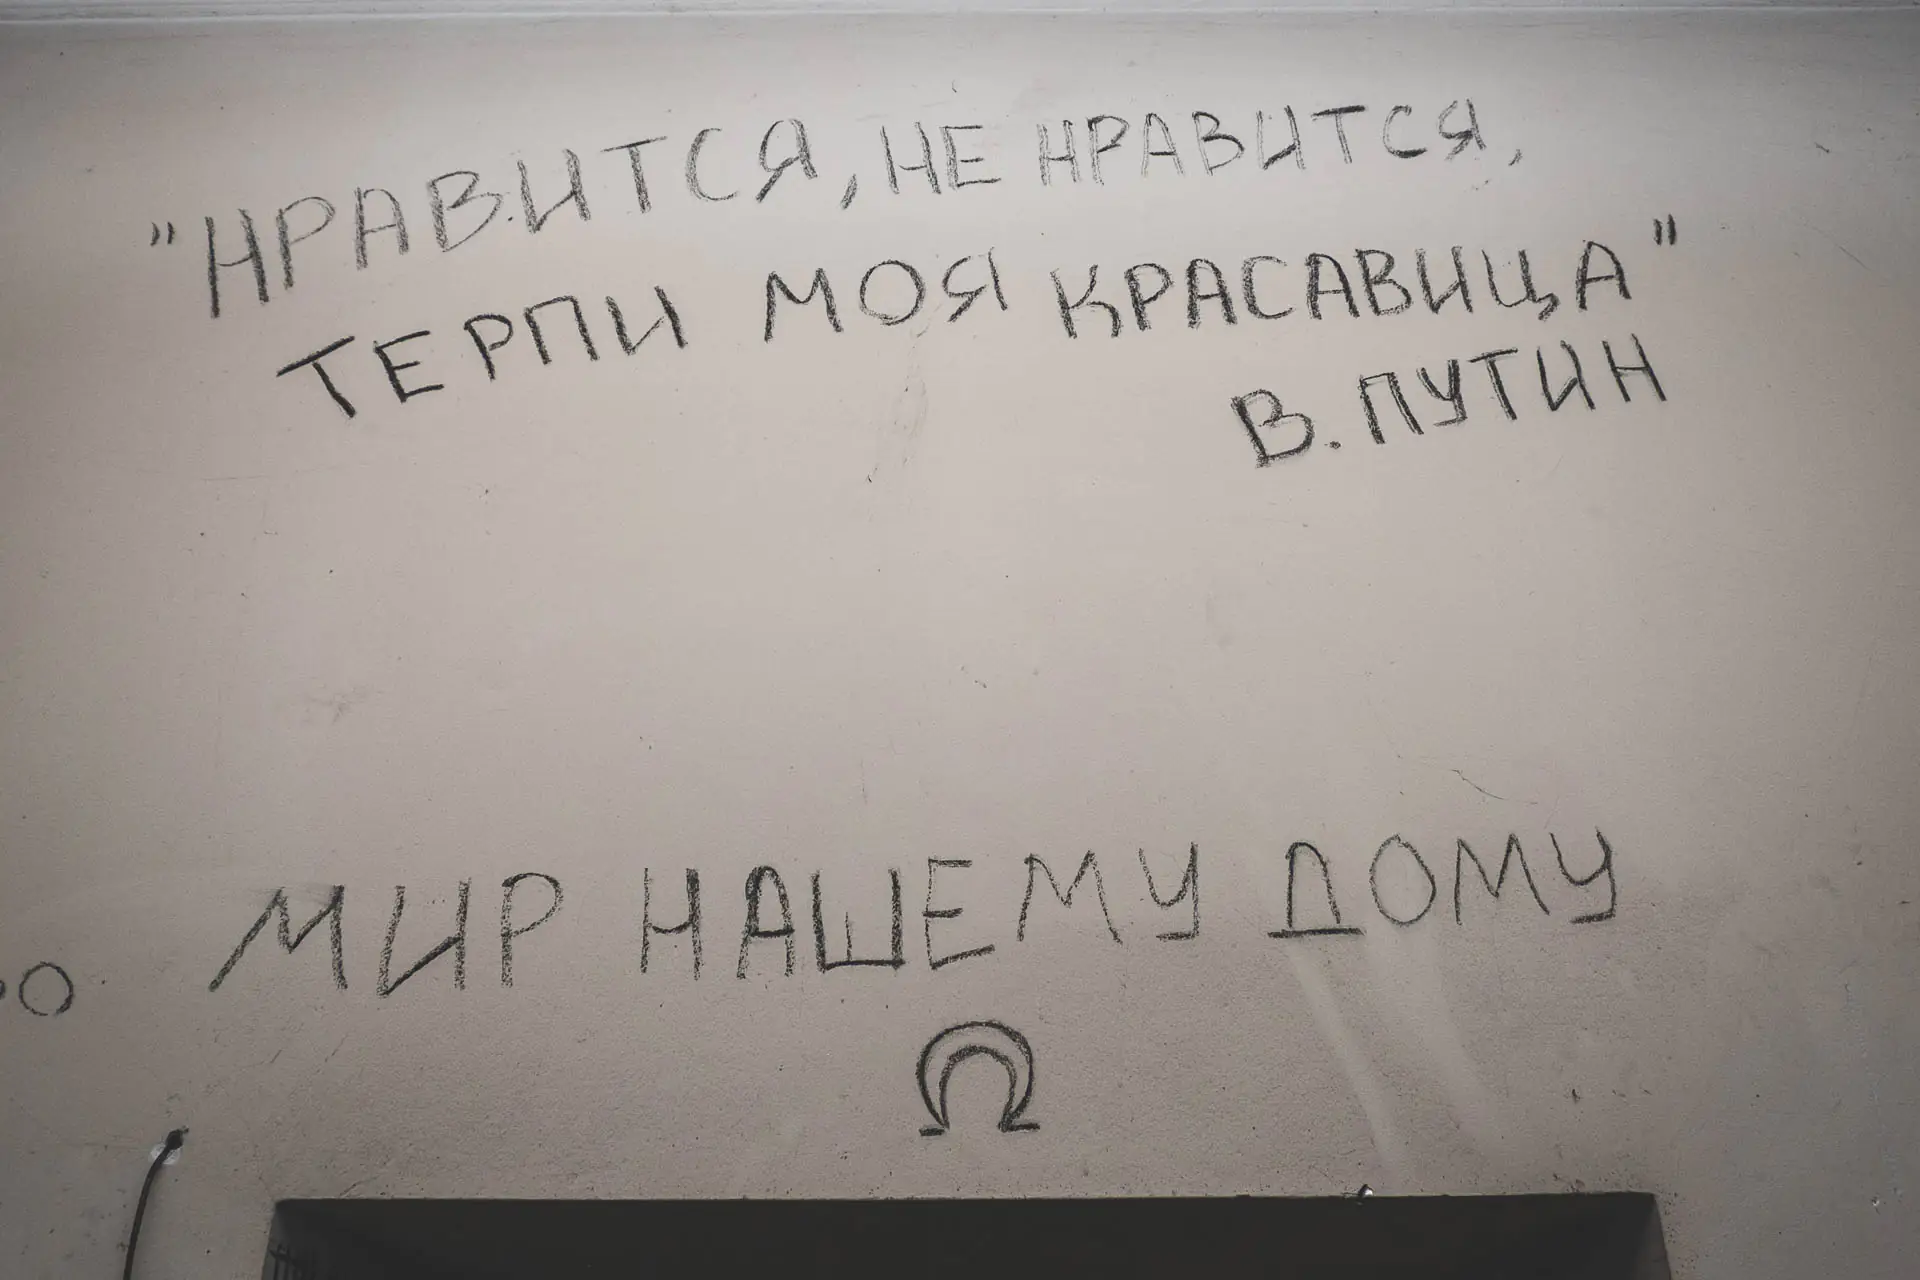 "НРАВИТСЯ, НЕ НРАВИТСЯ,
ТЕРПИ МОЯ КРАСАВИЦА"
В. ПУТИН
МИР НАШЕМУ ДОМУ
Ω